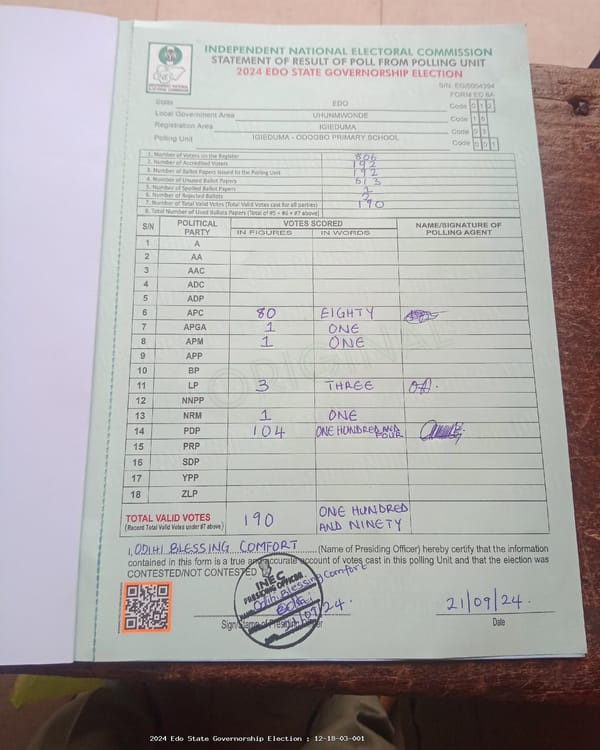 INDEPENDENT NATIONAL ELECTORAL COMMISSION
STATEMENT OF RESULT OF POLL FROM POLLING UNIT
2024 EDO STATE GOVERNORSHIP ELECTION
FORM EC 8A
State EDO Code 0 1 2
Local Government Area UHUNMWONDE Code 1 8
Registration Area IGIEDUMA Code 0 3
Polling Unit IGIEDUMA - ODOGBO PRIMARY SCHOOL Code 0 0 1
1. Number of Voters on the Register 806
2. Number of Accredited Voters 192
3. Number of Ballot Papers Issued to the Polling Unit
4. Number of Unused Ballot Papers
5. Number of Spoiled Ballot Papers
6. Number of Rejected Ballots
7. Number of Total Valid Votes (Total Valid Votes cast for all parties) 190
8. Total Number of Used Ballots Papers (Total of #5 + #6 + #7 above)
S/N POLITICAL PARTY VOTES SCORED NAME/SIGNATURE OF POLLING AGENT
IN FIGURES IN WORDS
1 A
2 AA
3 AAC
4 ADC
5 ADP
6 APC 80 EIGHTY
7 APGA 1 ONE
8 APM 1 ONE
9 APP
10 BP
11 LP 3 THREE
12 NNPP
13 NRM 1 ONE
14 PDP 104 ONE HUNDRED AND FOUR
15 PRP
16 SDP
17 YPP
18 ZLP
ORIGINAL
TOTAL VALID VOTES 190 ONE HUNDRED AND NINETY
(Record Total Valid Votes under #7 above)
I, ODIHI BLESSING COMFORT (Name of Presiding Officer) hereby certify that the information
contained in this form is a true and accurate account of votes cast in this polling Unit and that the election was
CONTESTED/NOT CONTESTED
INEC
PRESIDING OFFICER
Odihi Blessing Comfort
21/09/24.
21/09/24.
Sign/Stamp of Presiding Officer Date
2024 Edo State Governorship Election : 12-18-03-001